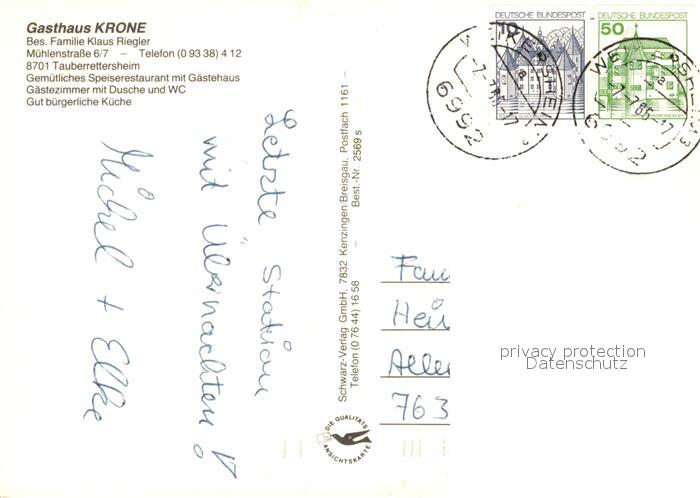 Gasthaus KRONE
Bes. Familie Klaus Riegler
Mühlenstraße 6/7 – Telefon (0 93 38) 4 12
8701 Tauberrettersheim
Gemütliches Speiserestaurant mit Gästehaus
Gästezimmer mit Dusche und WC
Gut bürgerliche Küche
Letzte Station
mit Übernachten!
Michel + Elke
Schwarz-Verlag GmbH, 7832 Kenzingen/Breisgau, Postfach 1161 –
Telefon (0 76 44) 16 58 – Best.-Nr. 2569 s
DIE QUALITÄTS
ANSICHTSKARTE
DEUTSCHE BUNDESPOST
10
DEUTSCHE BUNDESPOST
50
WEIKERSHEIM
6992
WEIKERSHEIM
6992
Fau
Hei
Alle
763
privacy protection
Datenschutz